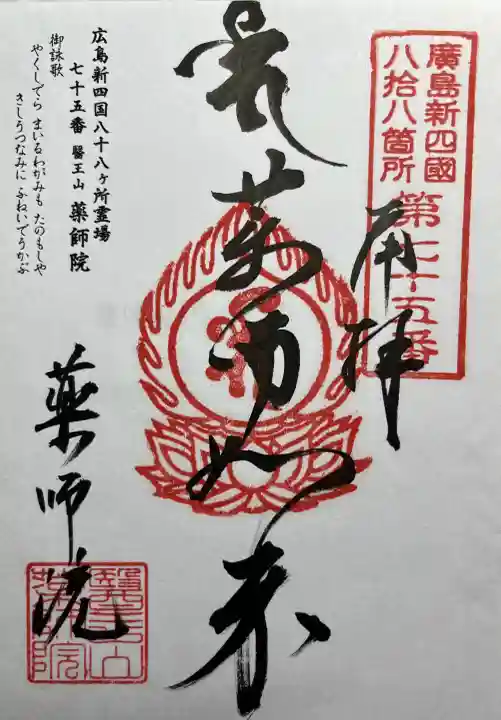 廣島新四國
八拾八箇所
第七十五番
奉拝
薬師如来
広島新四国八十八ヶ所霊場
七十五番 醫王山 薬師院
御詠歌
やくしでら まいるわがみも たのもしや
さきしうつなみに ふねいでうかぶ
薬師院